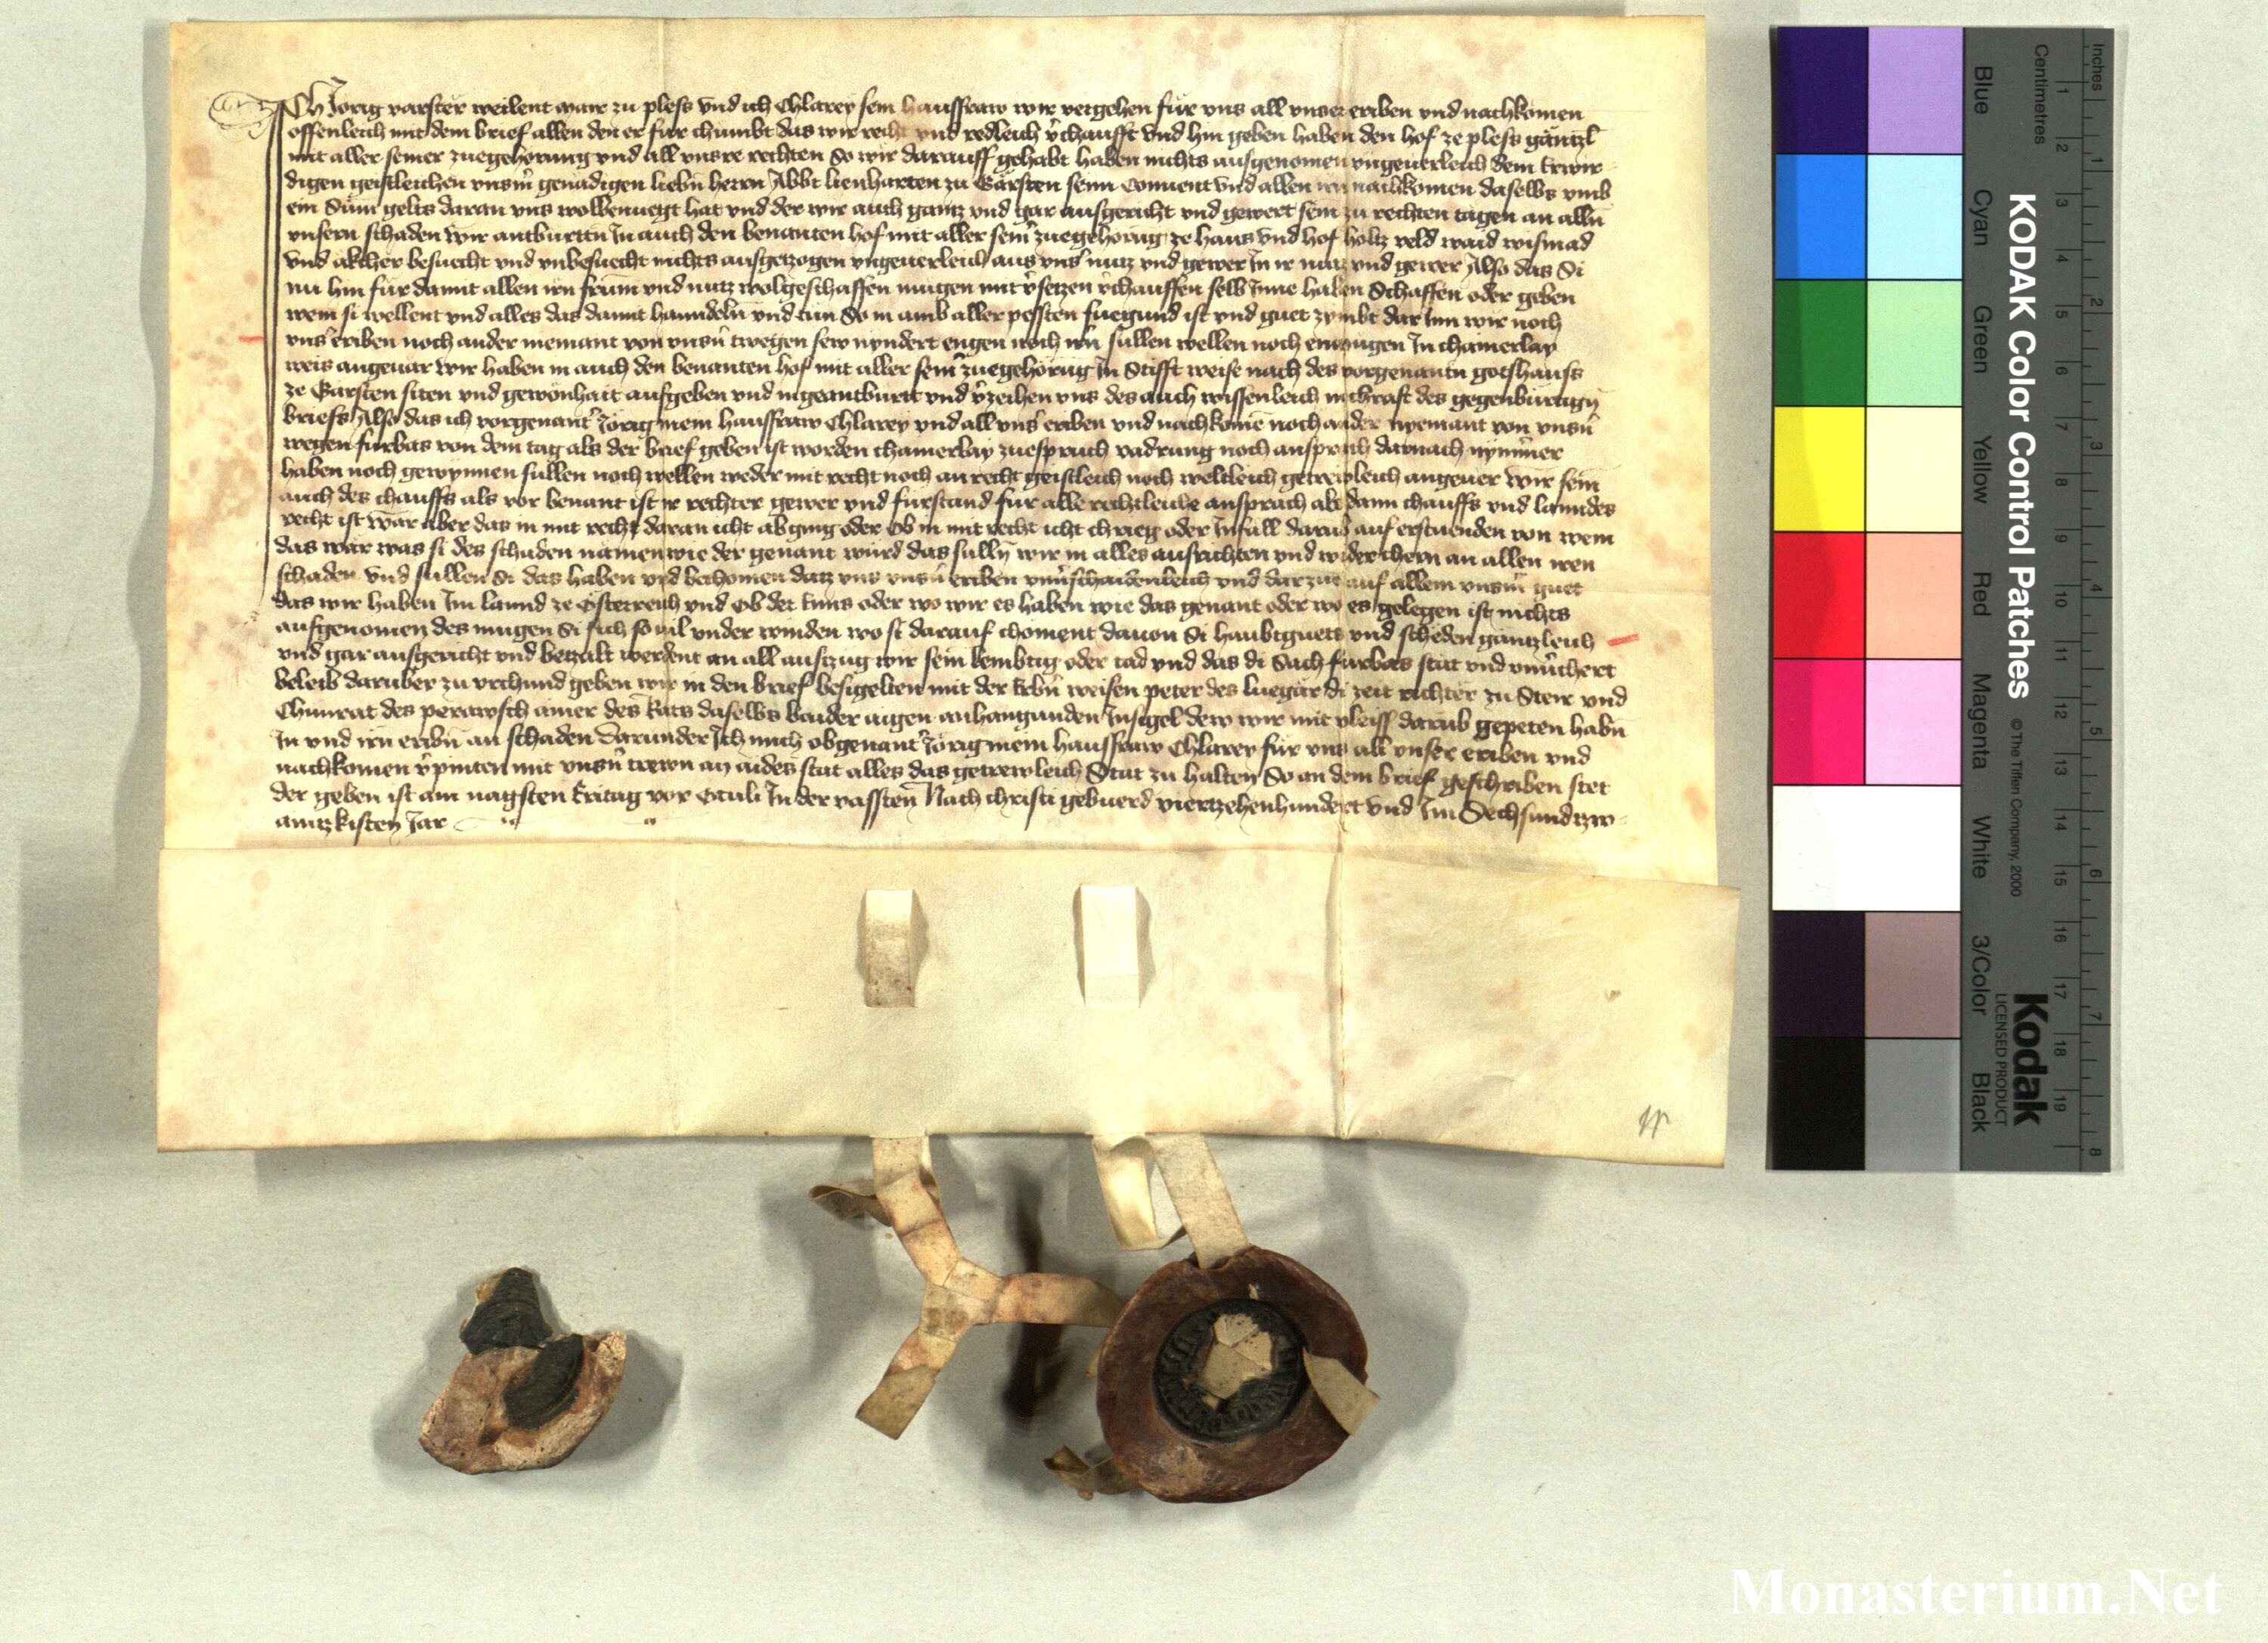 Ich Jörig varster weilent mair zu pless vnd ich Chlarey sein hausfraw wir vergehen für vns all vnser eriben vnd nachkömen
offenleich mit dem brief allen den er für chumbt das wir recht vnd redleich v̄chaufft vnd hin geben haben den hof ze pless gäntzl
mit aller seiner zuegehörung vnd all vnsre rechten So wir darauff gehabt haben nichts ausgenomen vngeuerleich dem Erwir
digen geistleichen vnsm̄ genadigen liebn̄ herrn Abbt lienharten zu Gärsten seim Conuent vnd allen irn nachkömen daselbs vmb
ein Sum gelts daran vns wolbenuegt hat vnd der wir auch gantz vnd gar ausgericht vnd gewert sein zu rechten tagen an alln̄
vnsern schaden wir antburttn In auch den benanten hof mit aller sein̄ zuegehörūg ze haus vnd hof holtz veld waid wismad
Vnd äkcher besuecht vnd vnbesuecht nichts ausgezogen vngeuerleich aus vns̄ nutz vnd gewer In ir nutz vnd gewer Also das Si
nu hin für damit allen irn frum vnd nutz wolgeschaffen mugen mit v̄setzen v̄chauffen selb Inne haben Schaffen oder geben
wem si wellent vnd alles das damit hanndeln vnd tun So in aimb aller pessten fuegund ist vnd guet zymbt dar Inn wir noch
vns̄ eriben noch ander niemant von vnsn̄ wegen sew nyndert engen noch irn̄ sullen wellen noch enmugen In chainerlay
weis angeuär wir haben in auch den benanten hof mit aller sein̄ zuegehörūg In Stifft weise nach des vorgenantn gotshauss
ze Gärsten siten vnd gewonhait aufgeben vnd ingeantburtt vnd v̄zeihen vns des auch wissenleich in chraft des gegenbürtign̄
briefs Also das ich vorgenant̄ Jörig mein hausfraw Chlarey vnd all vns̄ eriben vnd nachkömē noch ander nyemant von vnsn̄
wegen fürbas von dem tag als der brief geben ist worden chainerlay zuespruch vadrung noch ansprach darnach nym̄mer
haben noch gewynnen süllen noch wellen weder mit recht noch an recht geistleich noch weltleich getrewleich angeuer wir sein
auch des chauffs als vor benant ist ir rechter gewer vnd fürstand für alle rechtleiche ansprach als dann chauffs vnd lanndes
recht ist wär aber das in mit recht daran icht abging oder Ob in mit recht icht chrieg oder Infäll daraus auf erstuenden von wem
das wär was si des schaden nämen wie der genant würd das sülln̄ wir in alles ausrichten vnd widerchern an allen iren
schaden vnd süllen Si das haben vnd bechomen datz vns vnsn̄ eriben vnuerschaidenleich vnd darzue auf allem vnsm̄ guet
das wir haben Im lannd ze Österreich vnd Ob der Enns oder wo wir es haben wie das genant oder wo es gelegen ist nichts
ausgenomen des mugen Si sich souil vnder winden wo si darauf choment dauon Si haubtguets vnd scheden gäntzleich
vnd gar ausgericht vnd betzalt werdent an all aufzug wir sein lembtig oder tod vnd das di Sach fürbas stät vnd vnuerchert
beleib darüber zu vrchund geben wir in den brief besigelten mit der Erbn̄ weisen peter des luegär di zeit richter zu Steir vnd
Chunrat des perawschamer des Rats daselbs baider aigen anhangunden Insigel dew wir mit vleiss darūb gepeten habn̄
In vnd irn eribn̄ an schaden Darunder Ich mich obgenant̄ Jörig mein hausfraw Chlarey für vns all vnser eriben vnd
nachkömen v̄pinten mit vnsn̄ trewn an aides stat alles das getrewleich Stät zu halten So an dem brief geschriben stet
der geben ist am nagsten Eritag vor Oculi In der vassten Nach christi gebuerd viertzehenhundert vnd Im Sechsundzw
aintzkisten Jar
KODAK Color Control Patches
© The Tiffen Company, 2000
Kodak
LICENSED PRODUCT
Inches
Centimetres
Blue
Cyan
Green
Yellow
Red
Magenta
White
3/Color
Black
1 2 3 4 5 6 7 8 9 10 11 12 13 14 15 16 17 18 19
1 2 3 4 5 6 7 8
Monasterium.Net